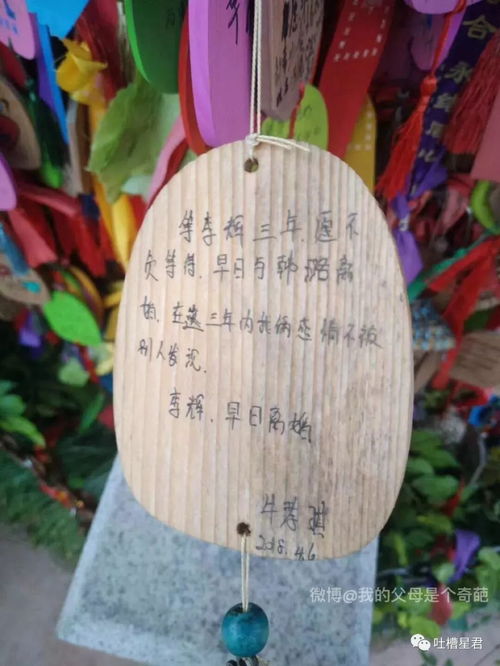 等李辉三年,愿不
负等待,早日与韩璐离
婚,在这三年内我俩恋情不被
别人发现.
李辉,早日离婚
2018.4.6
微博@我的父母是个奇葩
吐槽星君